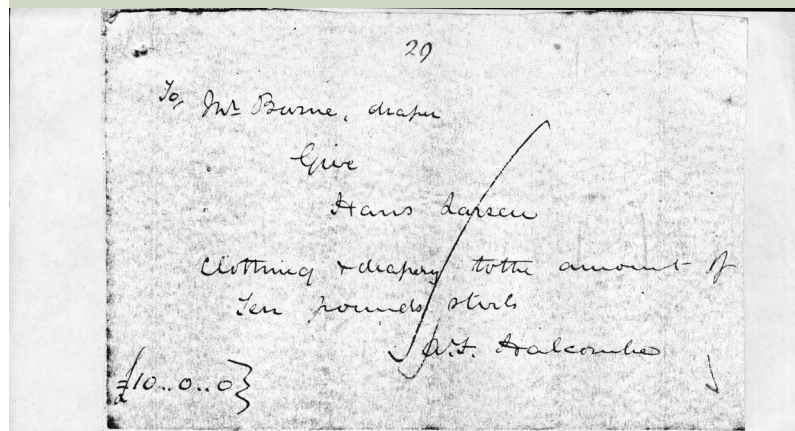 29
To, Mr Burne, draper
Give
Hans Larsen
Clothing & drapery to the amount of
Ten pounds sterls
Halcombe
£10..0..0